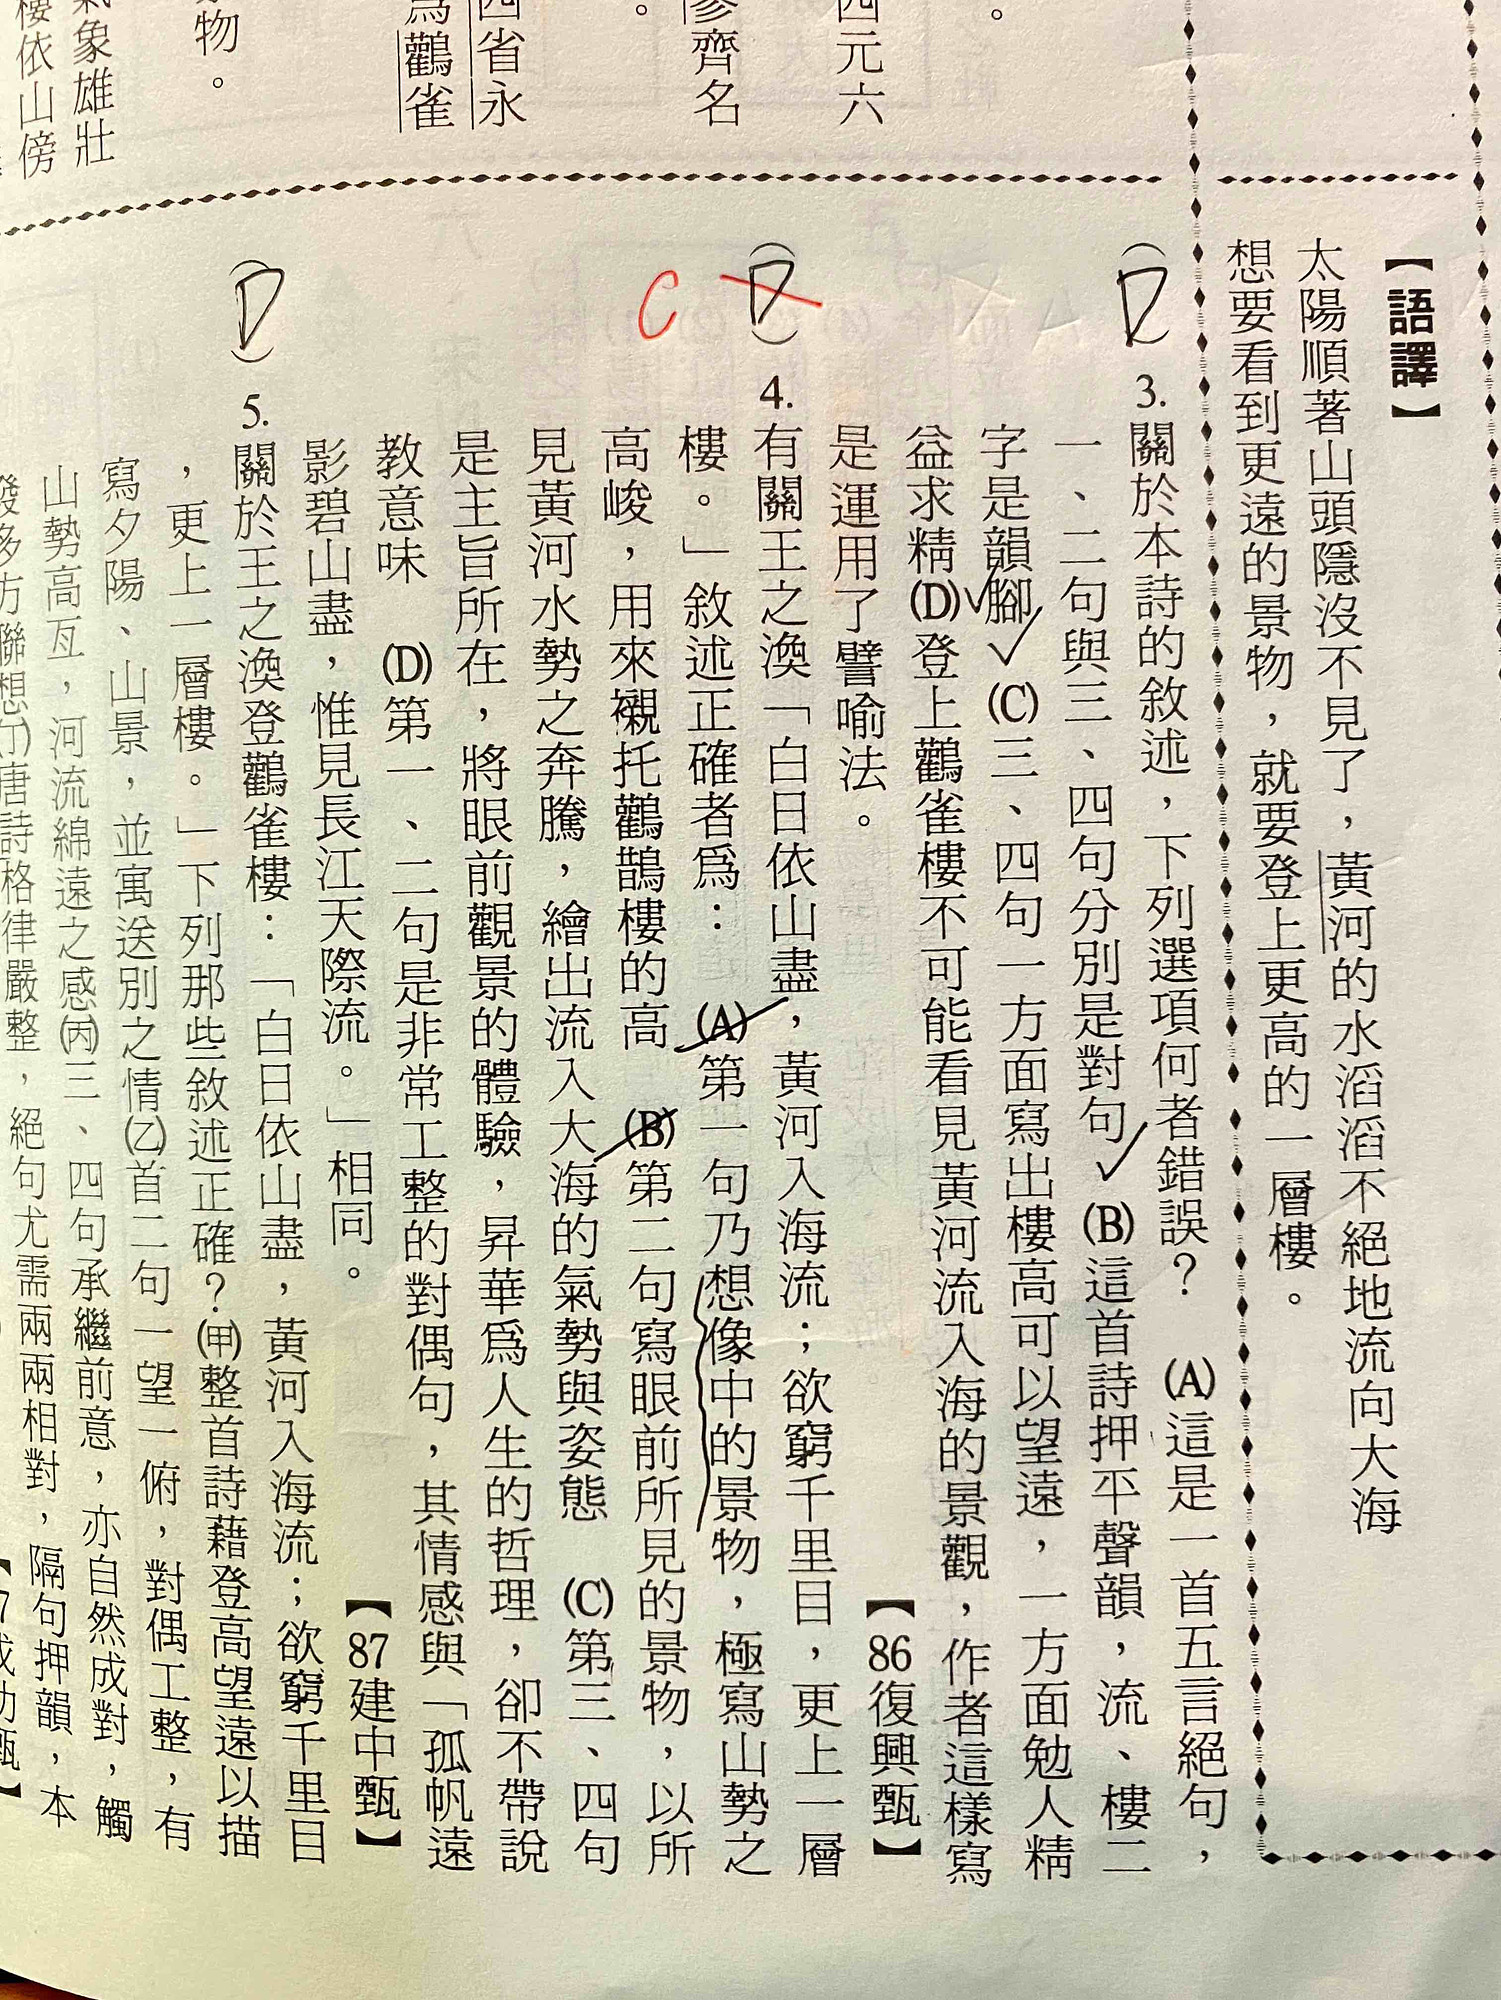 。
四元六
參齊名
。
四省永
爲鸛雀
物。
氣象雄壯
樓依山傍
【語譯】
太陽順著山頭隱沒不見了，黃河的水滔滔不絕地流向大海
想要看到更遠的景物，就要登上更高的一層樓。
(D)3.關於本詩的敘述，下列選項何者錯誤？　(A)這是一首五言絕句，
一、二句與三、四句分別是對句　(B)這首詩押平聲韻，流、樓二
字是韻腳　(C)三、四句一方面寫出樓高可以望遠，一方面勉人精
益求精(D)登上鸛雀樓不可能看見黃河流入海的景觀，作者這樣寫
是運用了譬喻法。　【86復興甄】
(D)4.有關王之渙「白日依山盡，黃河入海流；欲窮千里目，更上一層
C
樓。」敘述正確者爲：　(A)第一句乃想像中的景物，極寫山勢之
高峻，用來襯托鸛鵲樓的高　(B)第二句寫眼前所見的景物，以所
見黃河水勢之奔騰，繪出流入大海的氣勢與姿態　(C)第三、四句
是主旨所在，將眼前觀景的體驗，昇華爲人生的哲理，卻不帶說
教意味　(D)第一、二句是非常工整的對偶句，其情感與「孤帆遠
影碧山盡，惟見長江天際流。」相同。　【87建中甄】
(D)5.關於王之渙登鸛雀樓：「白日依山盡，黃河入海流；欲窮千里目
，更上一層樓。」下列那些敘述正確？(甲)整首詩藉登高望遠以描
寫夕陽、山景，並寓送別之情(乙)首二句一望一俯，對偶工整，有
山勢高亙，河流綿遠之感(丙)三、四句承繼前意，亦自然成對，觸
發多方聯想(丁)唐詩格律嚴整，絕句尤需兩兩相對，隔句押韻，本